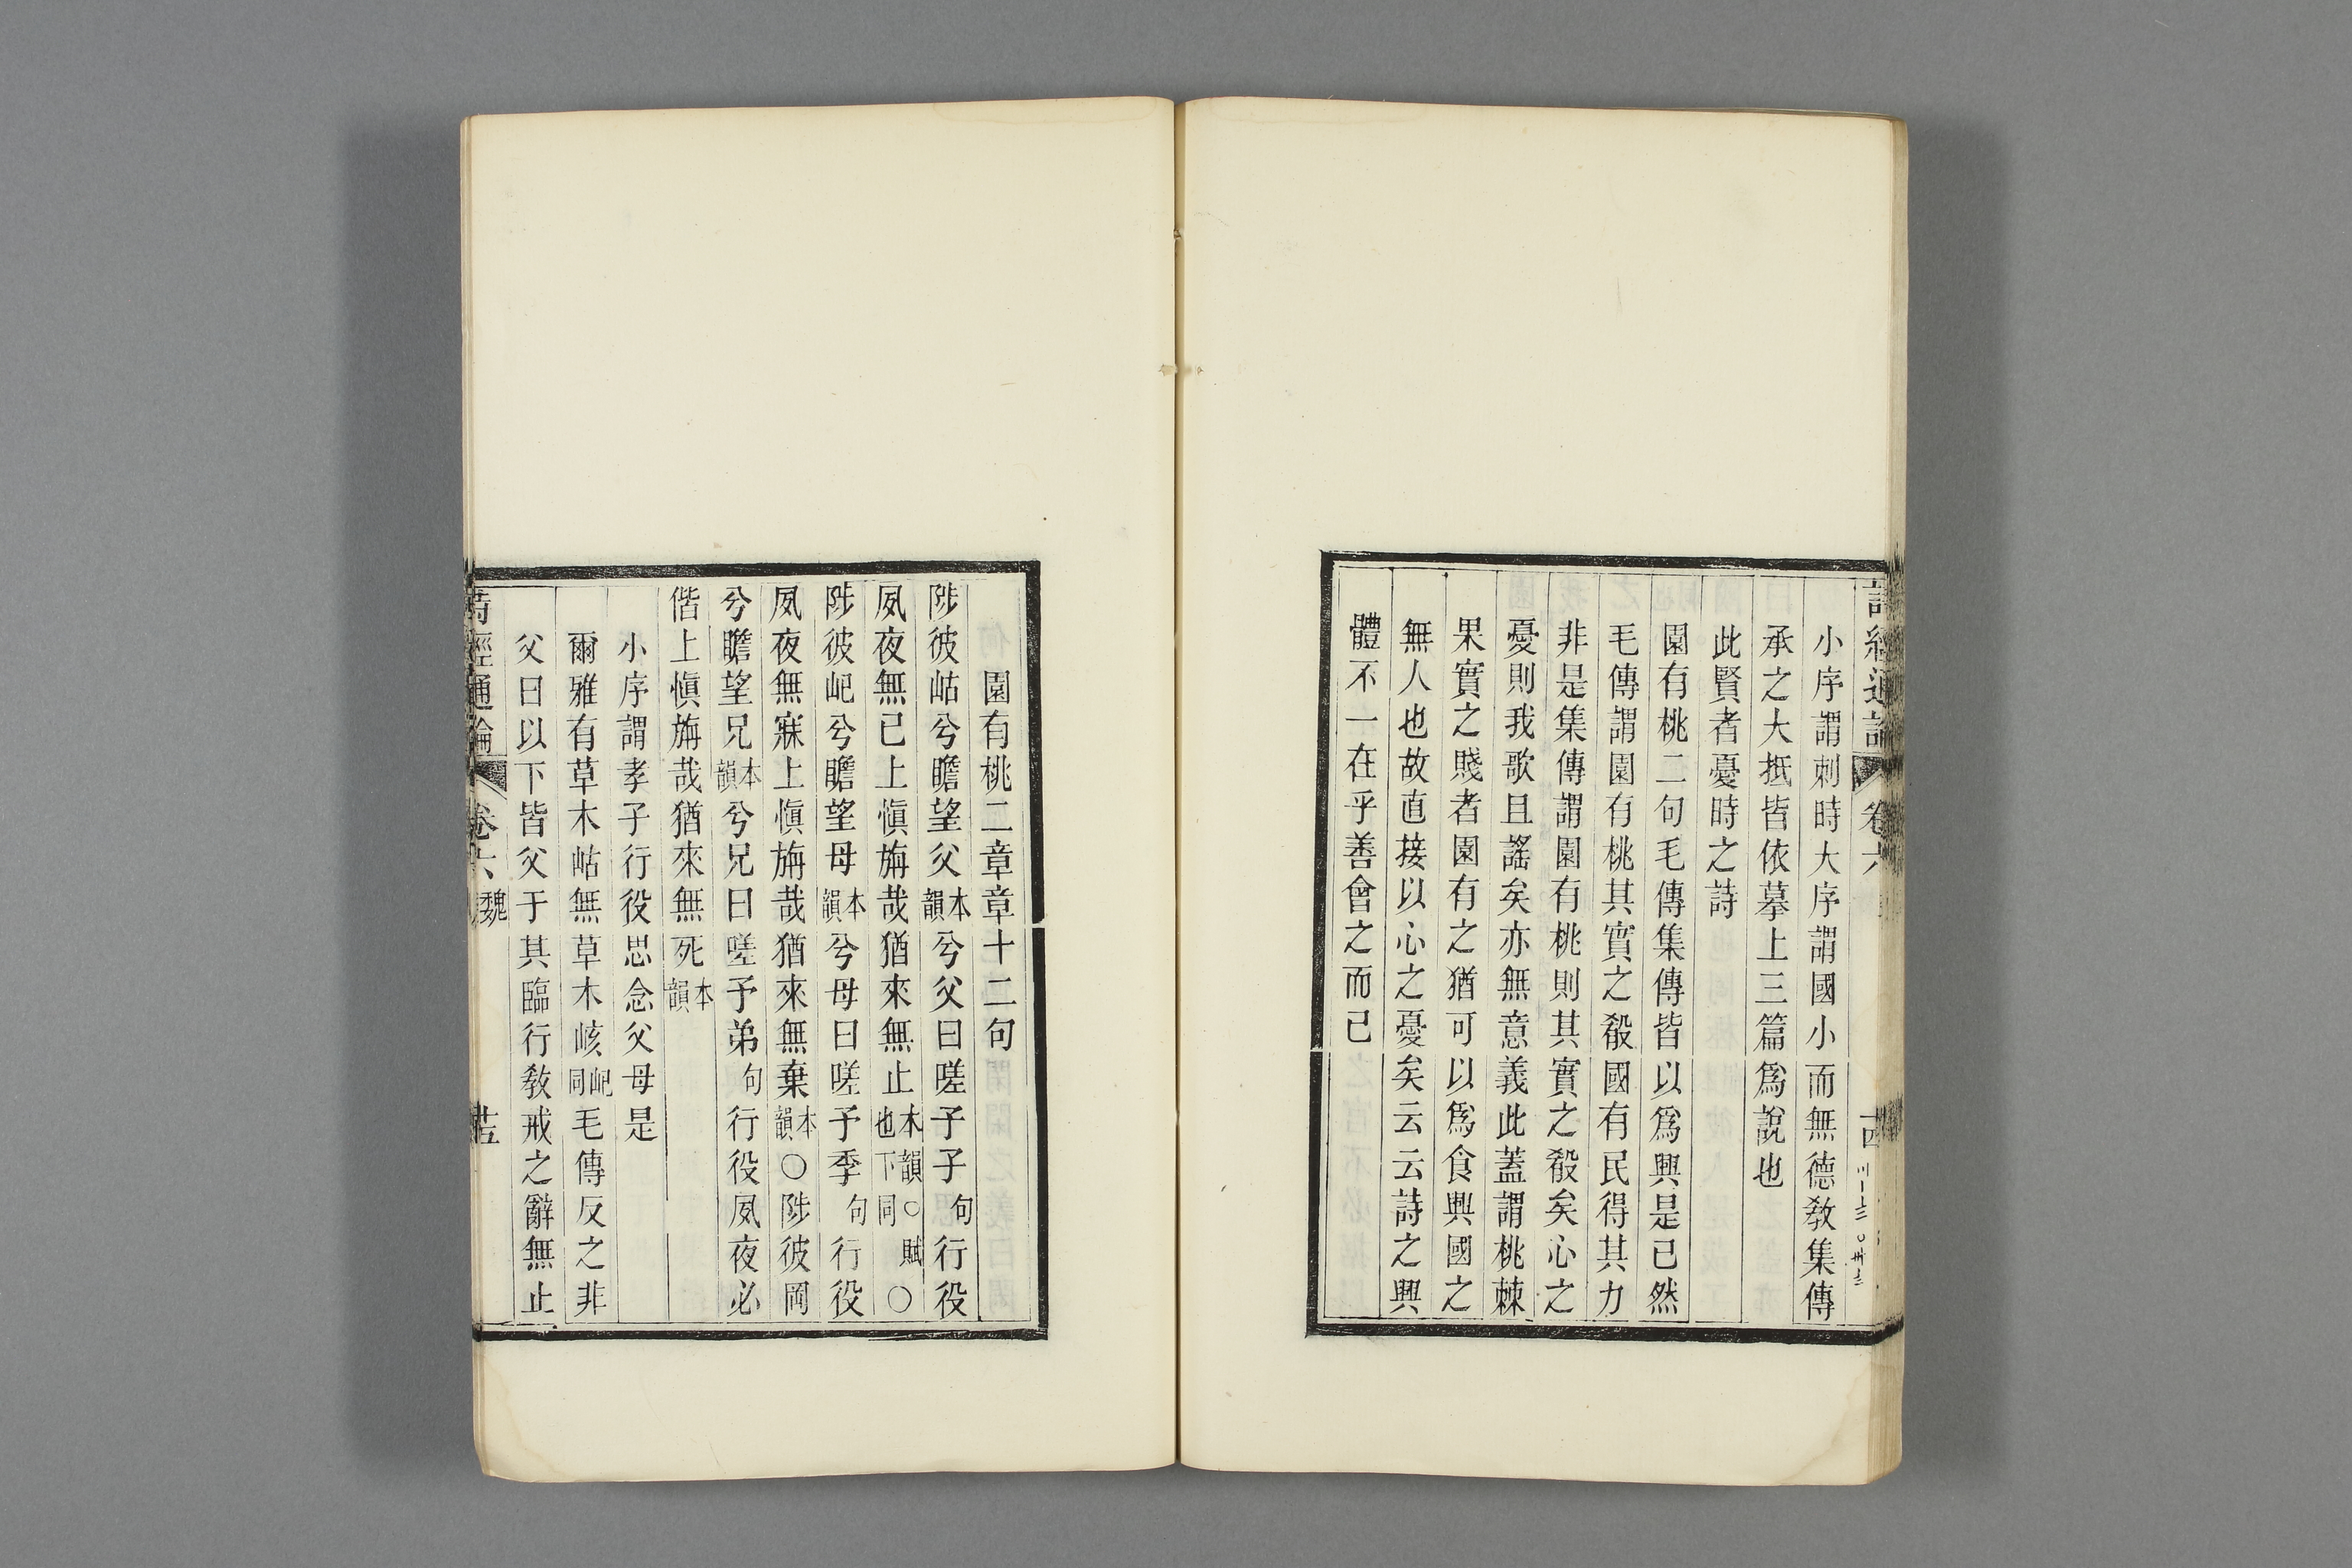 詩經通論 卷六 十四
小序謂刺時大序謂國小而無德教集傳
承之大抵皆依摹上三篇爲說也
此賢者憂時之詩
園有桃二句毛傳集傳皆以爲興是已然
毛傳謂園有桃其實之殽國有民得其力
非是集傳謂園有桃則其實之殽矣心之
憂則我歌且謠矣亦無意義此蓋謂桃棘
果實之賤者園有之猶可以爲食興國之
無人也故直接以心之憂矣云云詩之興
體不一在乎善會之而已
園有桃二章章十二句
陟彼岵兮瞻望父本韻兮父曰嗟予子句行役
夙夜無已上慎旃哉猶來無止本韻○賦也下同○
陟彼屺兮瞻望母本韻兮母曰嗟予季句行役
夙夜無寐上慎旃哉猶來無棄本韻○陟彼岡
兮瞻望兄本韻兮兄曰嗟予弟句行役夙夜必
偕上慎旃哉猶來無死本韻
小序謂孝子行役思念父母是
爾雅有草木岵無草木峐屺同毛傳反之非
父曰以下皆父于其臨行教戒之辭無止
詩經通論 卷六 魏